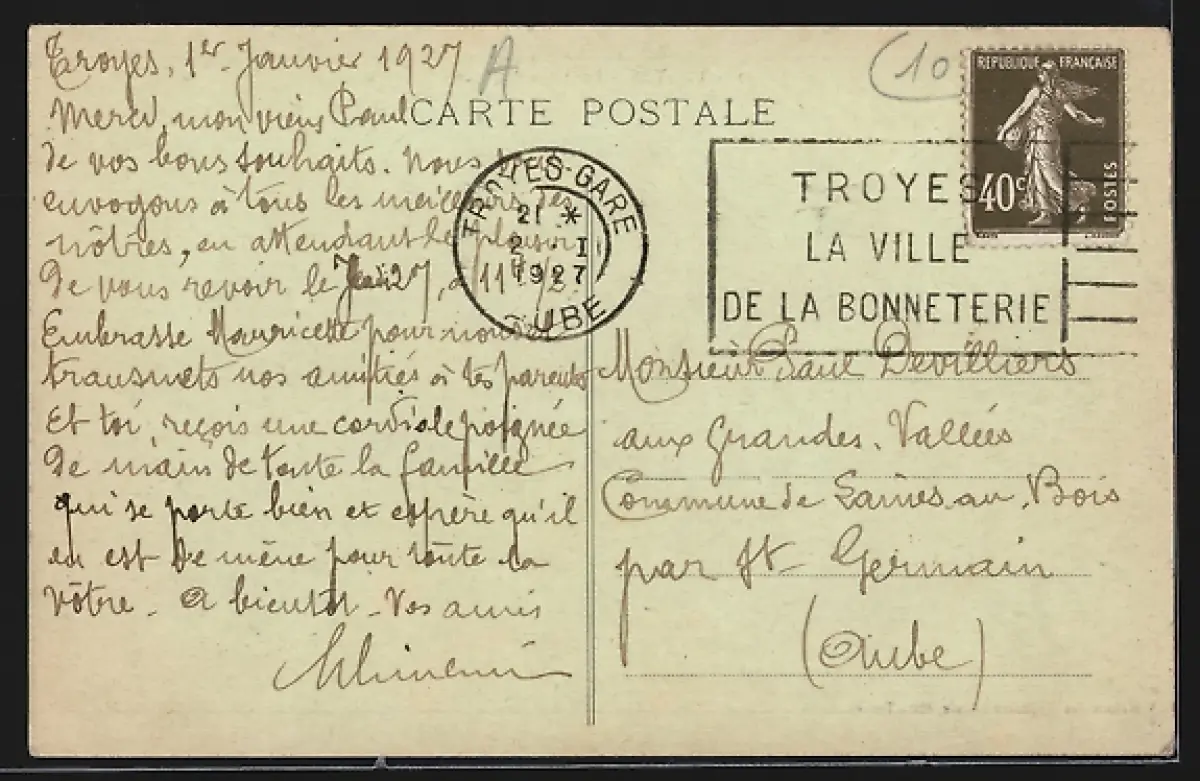 Troyes, 1er Janvier 1927
A
Merci, mon vieux Paul
de vos bons souhaits. Nous
envoyons à tous les meilleurs des
nôtres, en attendant le plaisir
de vous revoir le 27, à 11h 1/2.
Embrasse Mauricette pour nous et
transmets nos amitiés à tes parents
Et toi, reçois une cordiale poignée
de main de toute la famille
qui se porte bien et espère qu'il
en est de même pour toute la
vôtre. A bientôt. Vos amis
CARTE POSTALE
(10
REPUBLIQUE FRANÇAISE
40c
POSTES
TROYES-GARE
21 *
2 - I
1927
AUBE
TROYES
LA VILLE
DE LA BONNETERIE
Monsieur Paul Devilliers
aux Grandes. Vallées
Commune de Laines au Bois
par St Germain
(Aube)